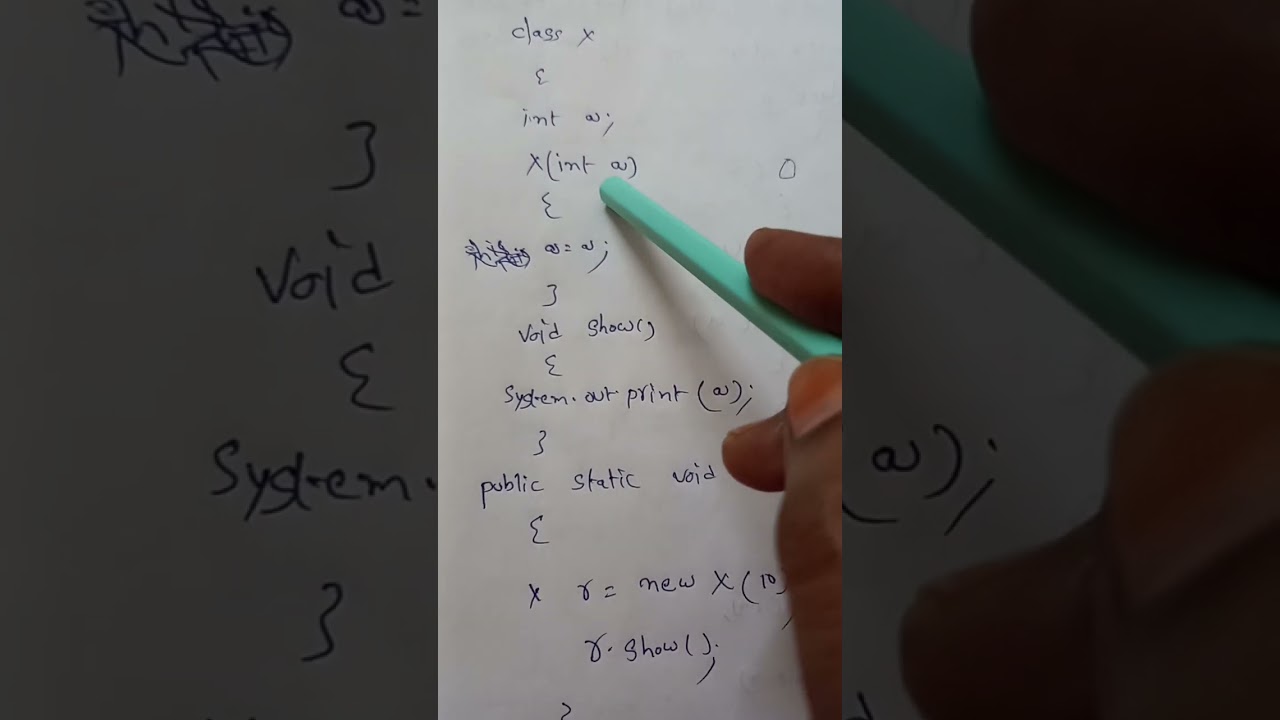 class X
{
int a;
X(int a)
{
a = a;
}
void show()
{
System.out.print(a);
}
public static void
{
X r = new X(10)
;
r.show();
}